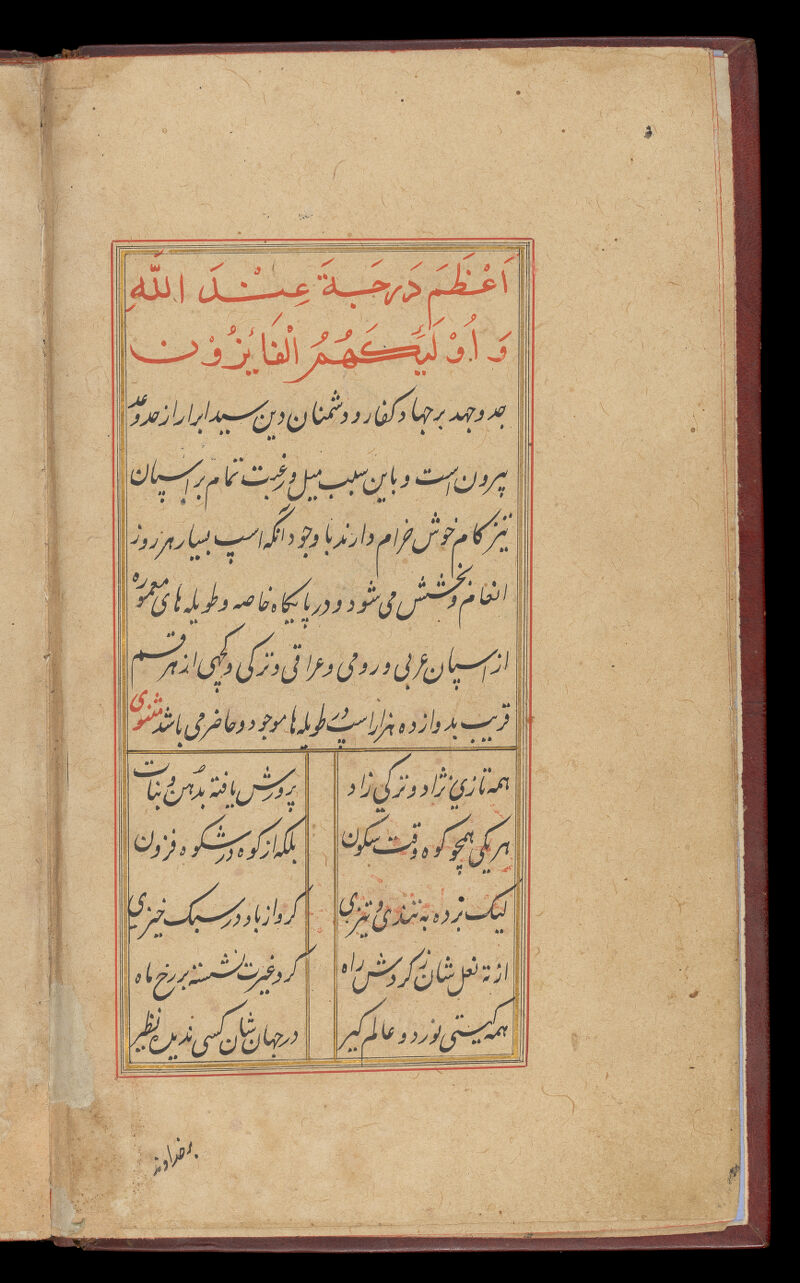 اَعْظَمَ دَرَجَةً عِنْدَ اللَّهِ
وَ اُوْلَئِكَ هُمُ الْفَائِزُوْن
جد وجهد بر جهاد کفار و دشمنان دین سید ابرار از حد و عد
بیرون است و باین سبب میل و رغبت تمام بر اسپان
تیز کام خوش خرام دارند با وجود آنکه اسپ بسیار هر روز
انعام و بخشش می شود و در پایگاه خاصه و طویله های معموره
از اسپان عربی و رومی و عراقی و ترکی و کچهی از هر قسم
قریب بدوازده هزار اسپ در طویله ها موجود و حاضر می باشد مثنوی
همه تازی نژاد و ترکی زاد پرورش یافته بدهن و نبات
هر یکی همچو کوه وقت سکون بلکه از کوه در شکوه فزون
لیک برده به تندی و تیزی گرو از باد در سبک خیزی
از ته نعل شان ز گردش راه گرد غیرت نشسته بر رخ ماه
همه گیتی نورد و عالم گیر در جهان شان کسی ندیده نظیر
بر خداوند